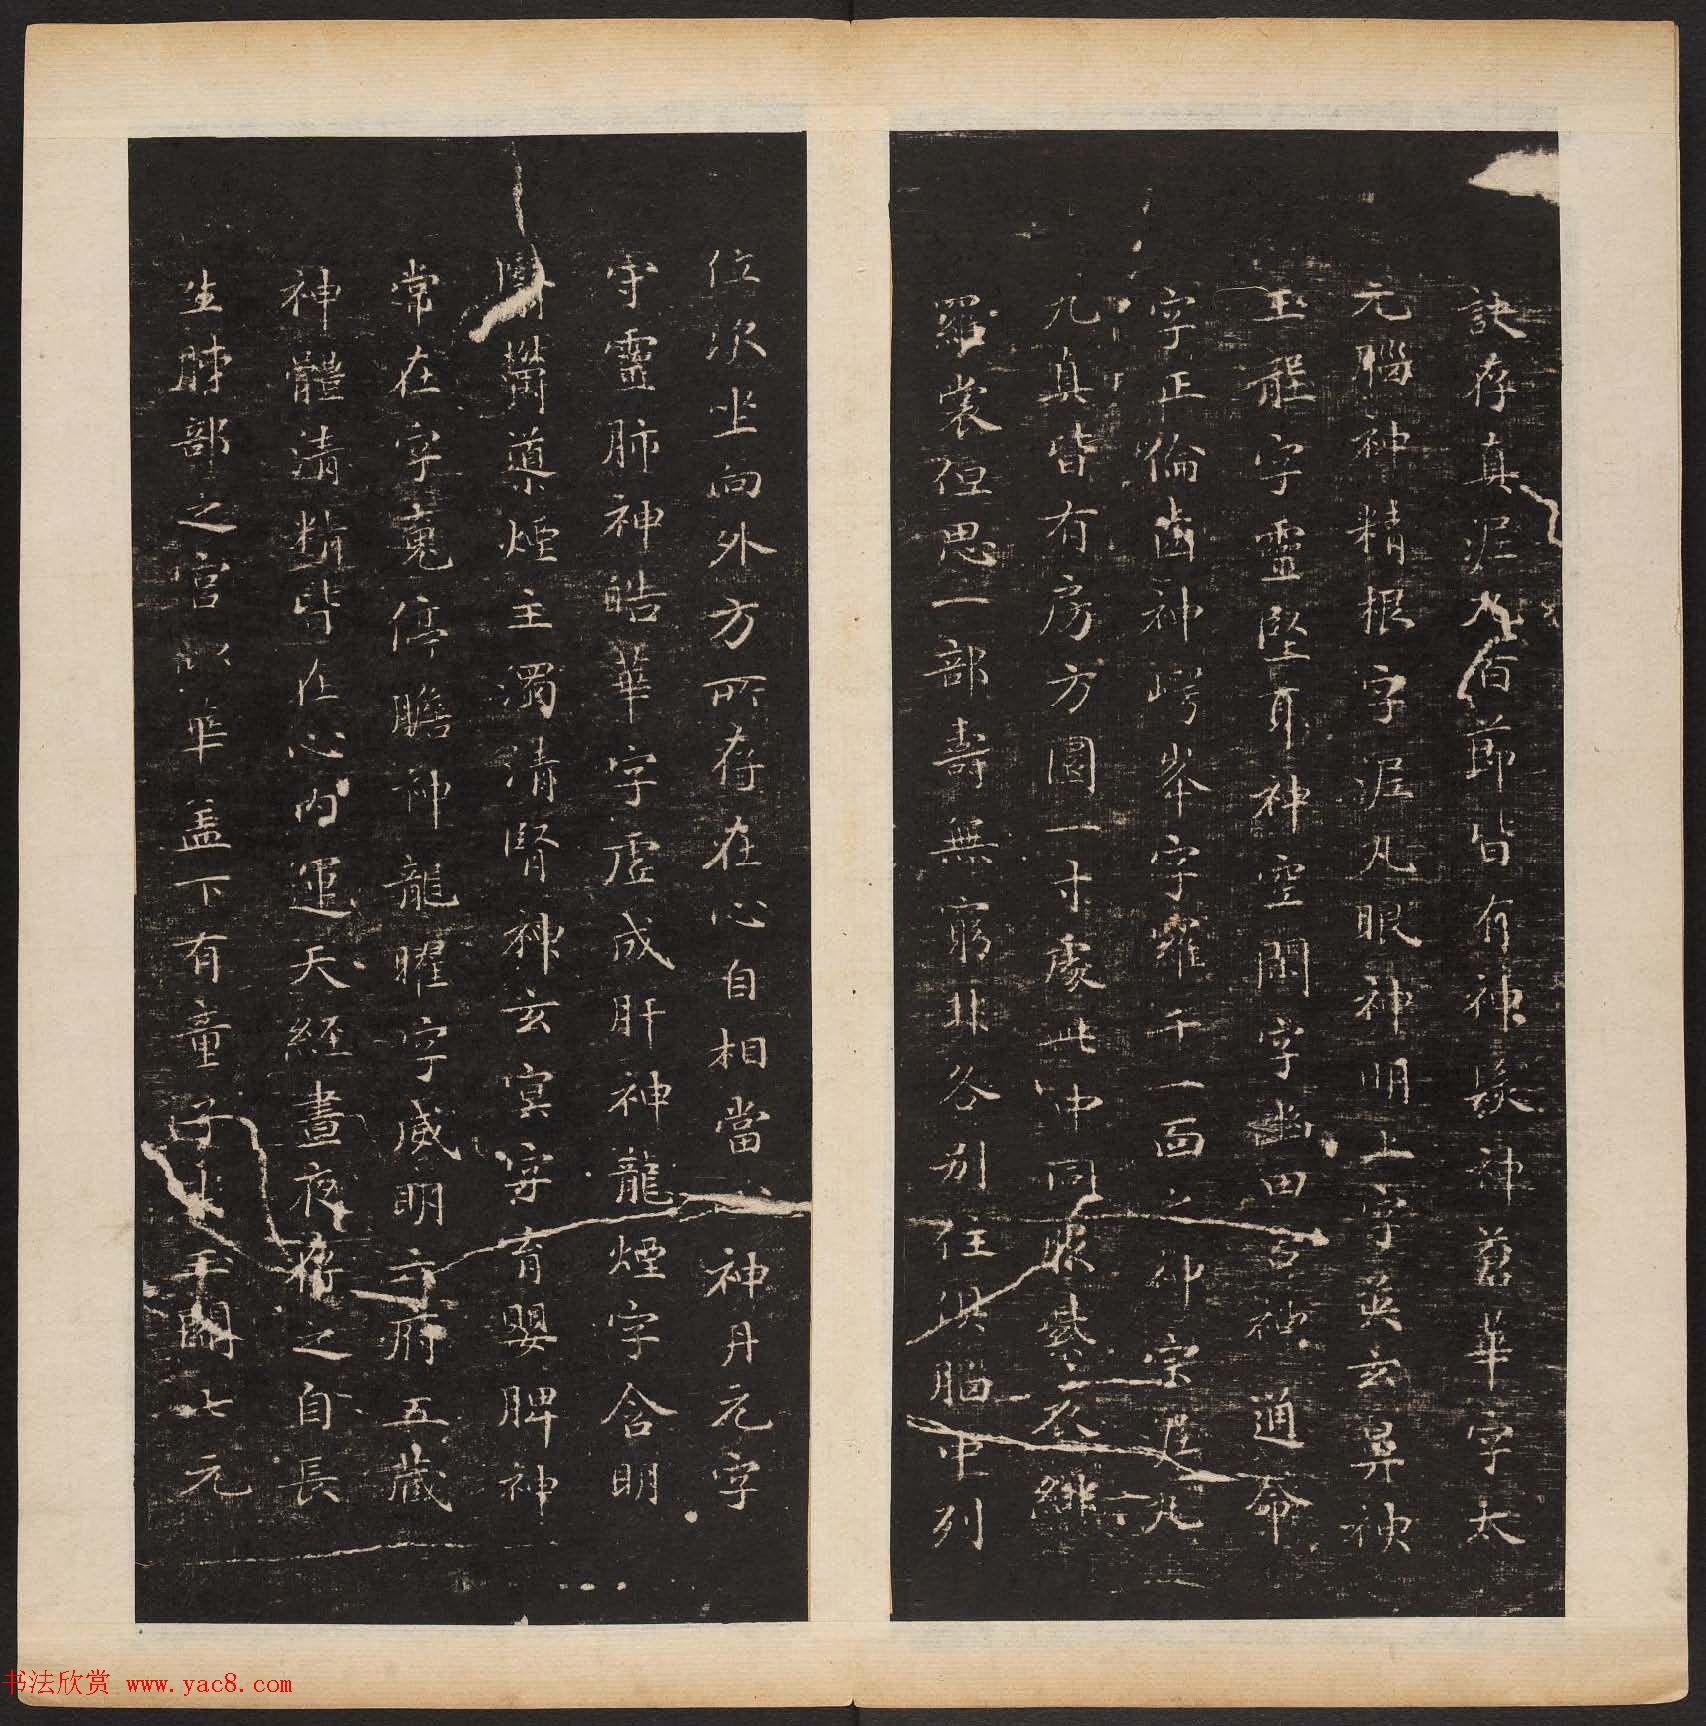 訣存真泥丸百節皆有神髮神蒼華字太
元腦神精根字泥丸眼神明上字英玄鼻神
玉壟字靈堅耳神空閑字幽田舌神通命
字正倫齒神崿峯字羅千一面之神宗泥丸
九真皆有房方圓一寸處此中同服紫衣緋
羅裳但思一部壽無窮非各別住俱腦中列
位次坐向外方所存在心自相當心神丹元字
守靈肺神皓華字虛成肝神龍煙字含明
翳鬱導煙主濁清腎神玄冥字育嬰脾神
常在字魂停膽神龍曜字威明六府五藏
神體清精皆在心內運天經晝夜存之自長
生肺部之宮似華蓋下有童子坐玉闕七元
书法欣赏 www.yac8.com